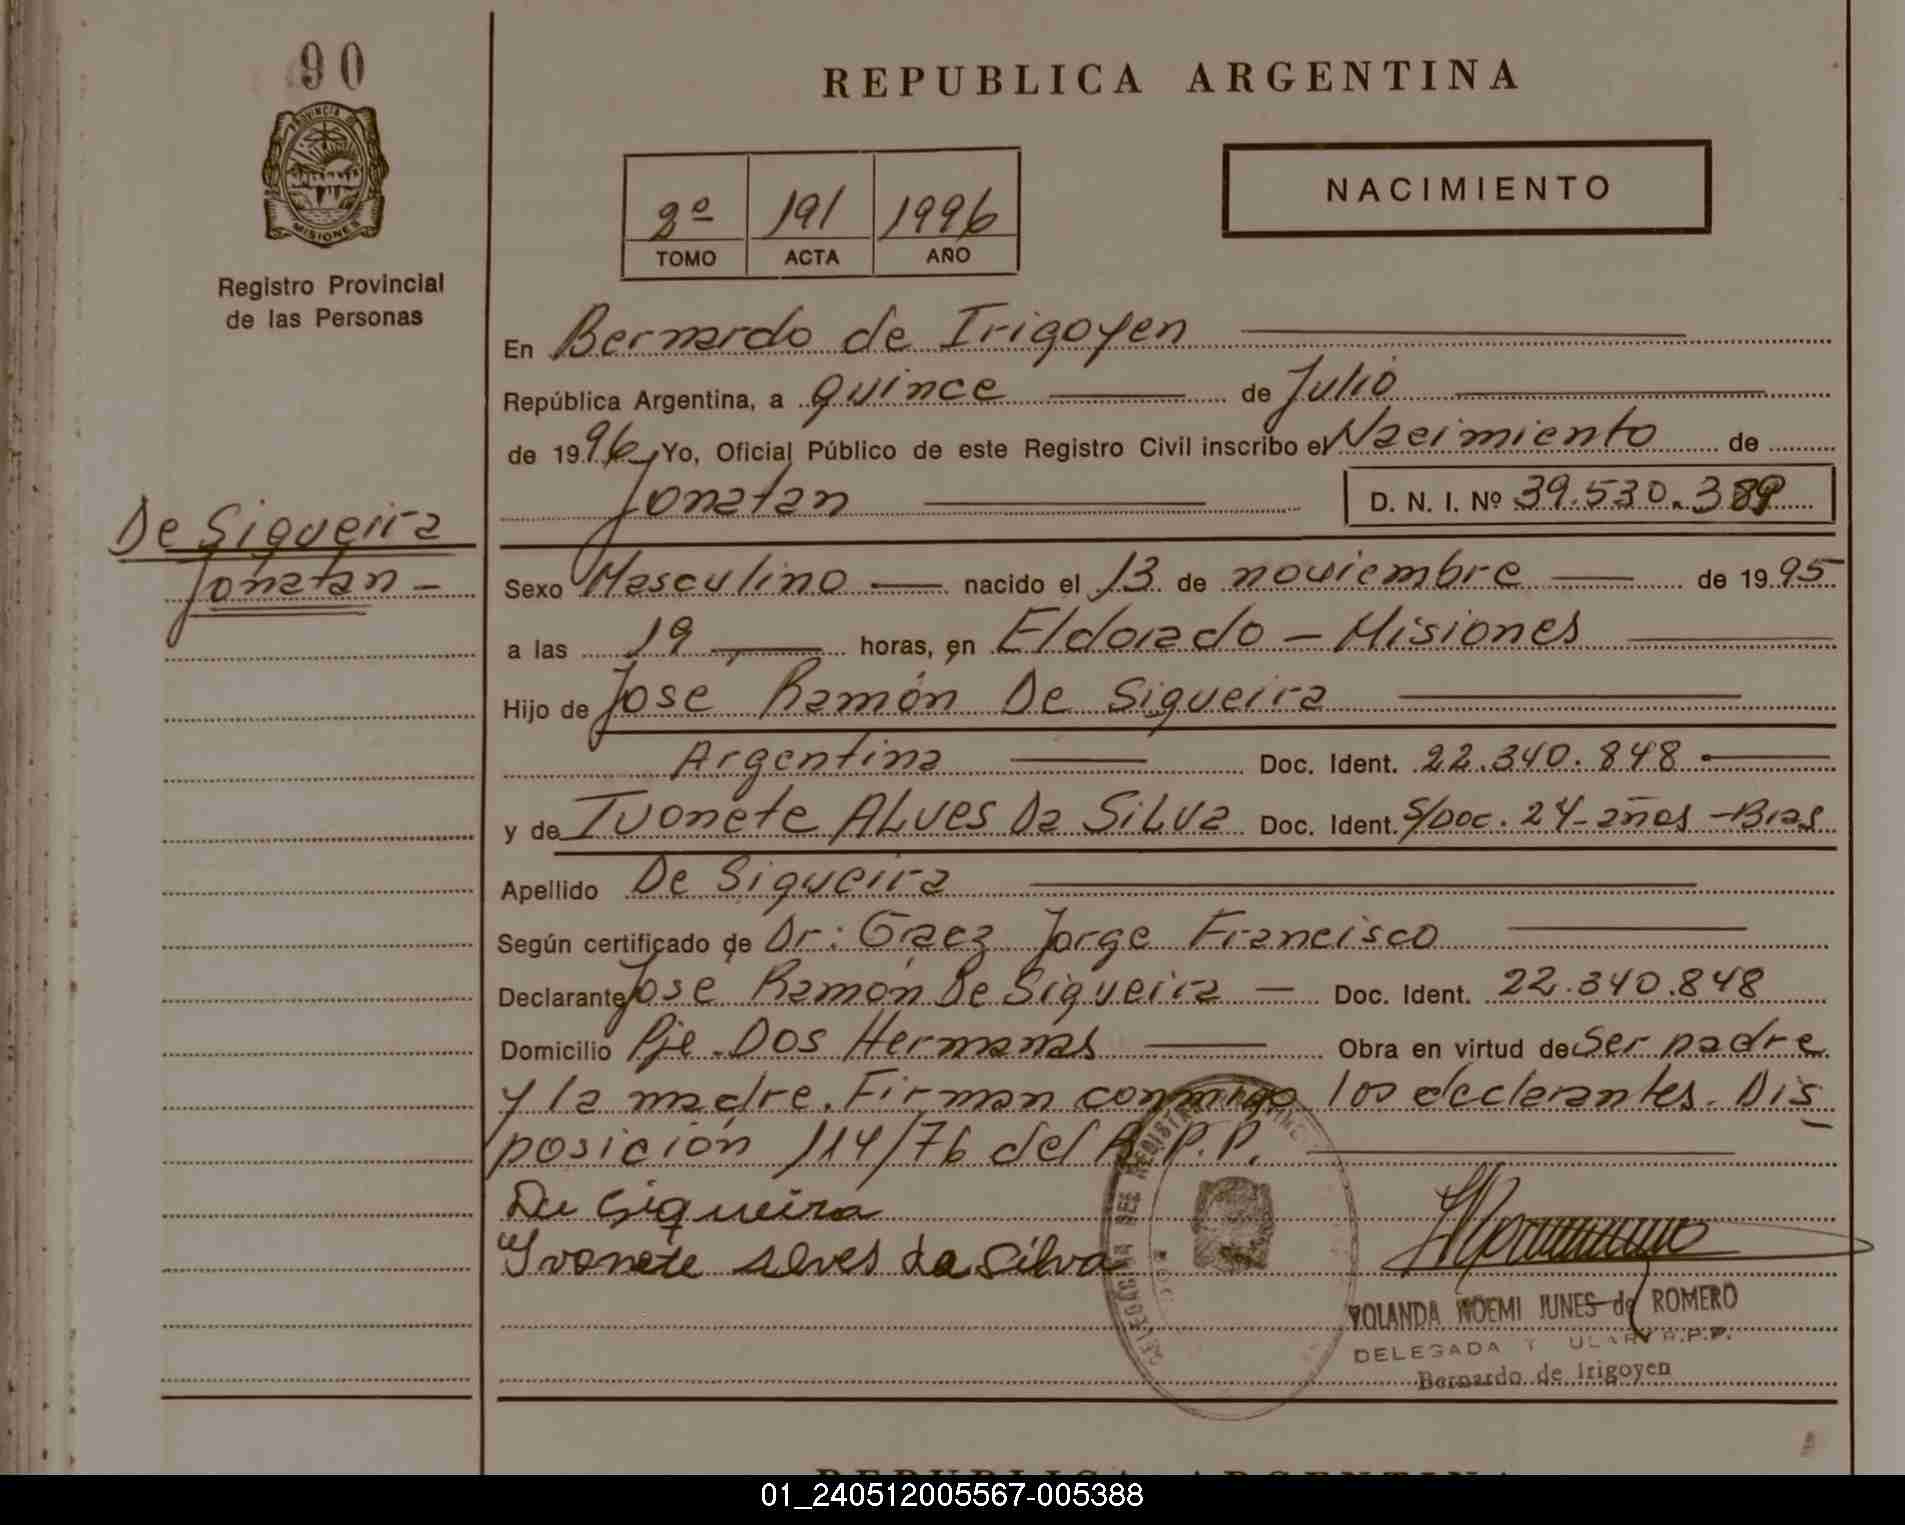 90
PROVINCIA DE
MISIONES
Registro Provincial
de las Personas
REPUBLICA ARGENTINA
2º 191 1996
TOMO ACTA AÑO
NACIMIENTO
En Bernardo de Irigoyen
República Argentina, a quince de Julio
de 1996 Yo, Oficial Público de este Registro Civil inscribo el Nacimiento de
Jonatan D. N. I. Nº 39.530.389
De Siqueira
Jonatan -
Sexo Masculino nacido el 13 de noviembre de 1995
a las 19 horas, en Eldorado - Misiones
Hijo de Jose Ramón De Siqueira
Argentina Doc. Ident. 22.340.848
y de Ivonete ALves Da SiLva Doc. Ident. S/Doc. 24 años - Bras
Apellido De Siqueira
Según certificado de Dr: Graez Jorge Francisco
Declarante Jose Ramón De Siqueira - Doc. Ident. 22.340.848
Domicilio Pje. Dos Hermanas Obra en virtud de Ser padre
y la madre. Firman conmigo los declarantes. Dis
posición 114/76 del R.P.P.
De Siqueira
Yvonete alves da Silva
YOLANDA NOEMI JUNES de ROMERO
DELEGADA R.P.P.
Bernardo de Irigoyen
REPUBLICA ARGENTINA
01_240512005567-005388